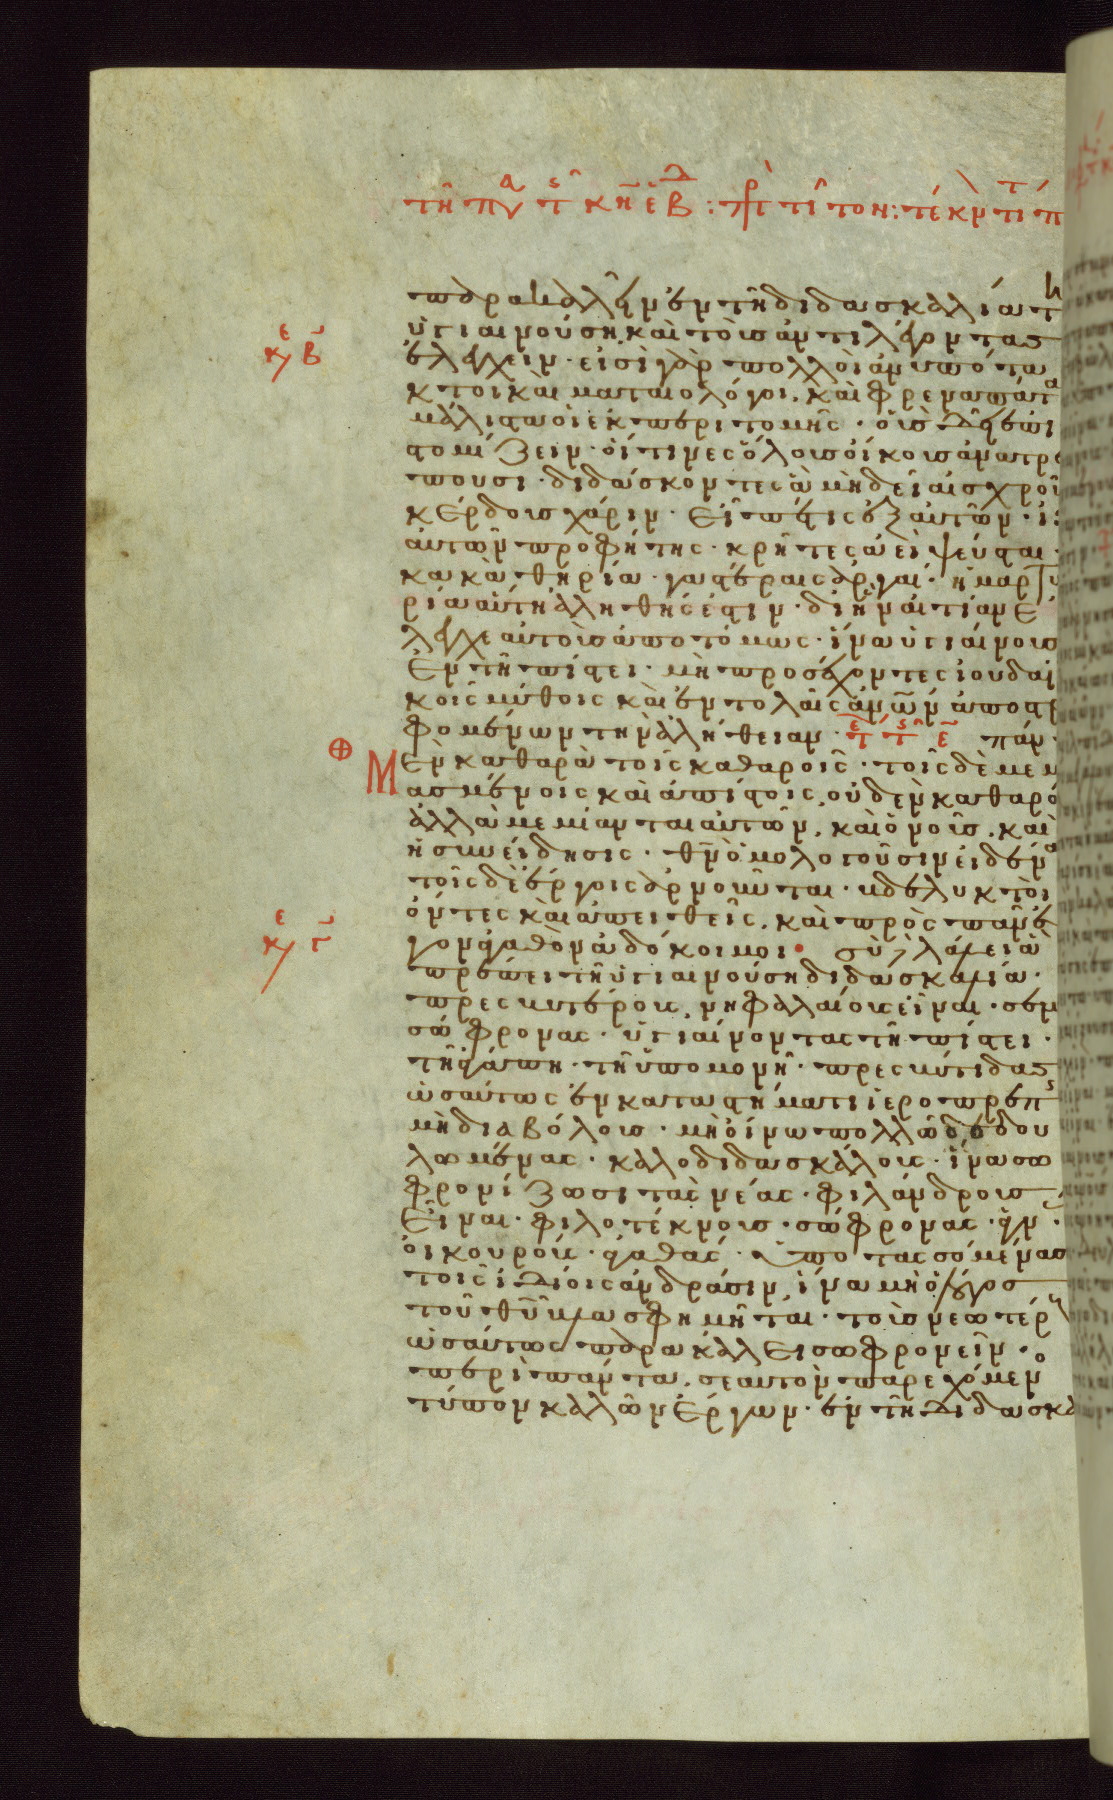 παρακαλεῖν ἐν τῇ διδασκαλία τῇ
ὑγιαινούση. καὶ τοὺς ἀντιλέγοντας
ἐλέγχειν. εἰσὶ γὰρ πολλοὶ ἀνυπότα
κτοι καὶ ματαιολόγοι. καὶ φρεναπάτ
μάλιστα οἱ ἐκ περιτομῆς. οὓς δεῖ ἐπι
στομίζειν. οἵτινες ὅλους οἴκους ἀνατρέ
πουσι. διδάσκοντες ἃ μὴ δεῖ αἰσχροῦ
κέρδους χάριν. εἶπέ τις ἐξ αὐτῶν. ἴ
αὐτῶν προφήτης. κρῆτες ἀεὶ ψεύσται.
κακὰ θηρία. γαστέραις ἀργαί. ἡ μαρτυ
ρία αὕτη ἀληθής ἐστιν. δι' ἣν αἰτίαν ἔ
λεγχε αὐτοὺς ἀποτόμως. ἵνα ὑγιαίνουσ
ἐν τῇ πίστει. μὴ προσέχοντες ἰουδαϊ
κοῖς μύθοις καὶ ἐντολαῖς ἀνῶν ἀποστ
φομένων τὴν ἀλήθειαν. πάν
μὲν καθαρὰ τοῖς καθαροῖς. τοῖς δὲ μεμ
ασμένοις καὶ ἀπίστοις, οὐδὲν καθαρὸ
ἀλλὰ μεμίανται αὐτῶν. καὶ ὁ νοῦς. καὶ
ἡ συνείδησις. θν ὁμολογοῦσιν εἰδέν
τοῖς δὲ ἔργοις ἀρνοῦνται. βδελυκτοὶ
ὄντες καὶ ἀπειθεῖς. καὶ πρὸς πᾶν ἔ
γον ἀγαθὸν ἀδόκιμοι. σὺ λάλει ἃ
πρέπει τῇ ὑγιαινούση διδασκαλία.
πρεσβυτέρους, νηφαλαίους εἶναι. σεμ
σώφρονας. ὑγιαίνοντας τῇ πίστει.
τῇ ἀγάπη. τῇ ὑπομονῇ. πρεσβύτιδας
ὡσαύτως ἐν καταστήματι ἱεροπρεπ
μὴ διαβόλους. μὴ οἴνω πολλῶ δεδου
λωμένας. καλοδιδασκάλους. ἵνα σω
φρονίζωσι τὰς νέας. φιλάνδρους
εἶναι. φιλοτέκνους. σώφρονας. ἁγν.
οἰκουρούς. ἀγαθάς. ὑποτασσομένας
τοῖς ἰδίοις ἀνδράσιν, ἵνα μὴ ὁ λόγος
τοῦ θῦ βλασφημῆται. τοὺς νεωτέρ
ὡσαύτως παρακάλει σωφρονεῖν.
περὶ πάντα. σεαυτὸν παρεχόμεν
τύπον καλῶν ἔργων. ἐν τῇ διδασκα